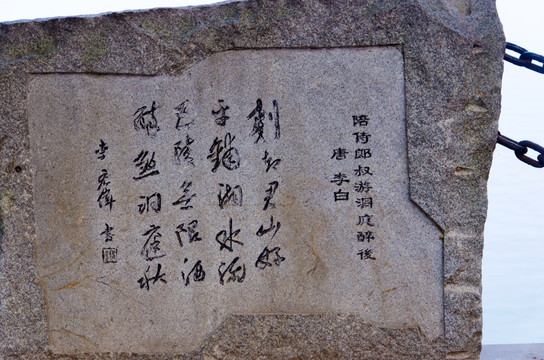 陪侍郎叔游洞庭醉後
唐 李白
刬却君山好
平鋪湘水流
巴陵無限酒
醉煞洞庭秋